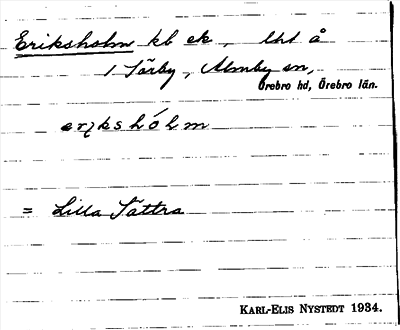 Eriksholm kb ek, lht å
1 Törby, Almby sn,
Örebro hd, Örebro län.
erı̨kshólm
= Lilla Sättra
KARL-ELIS NYSTEDT 1934.